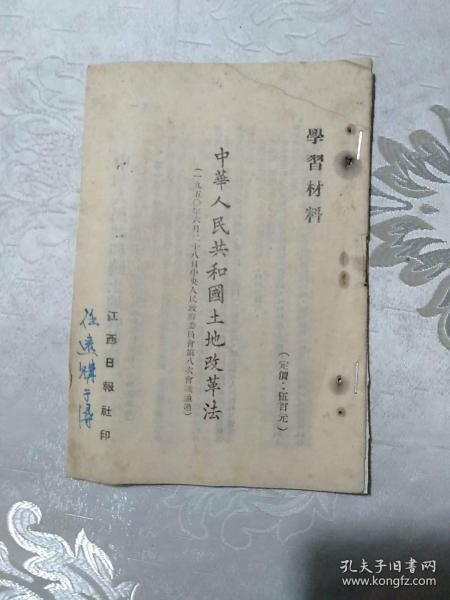 學習材料
(定價：伍百元)
中華人民共和國土地改革法
(一九五〇年六月二十八日中央人民政府委員會第八次會議通過)
江西日報社印
孔夫子旧书网
www.kongfz.com